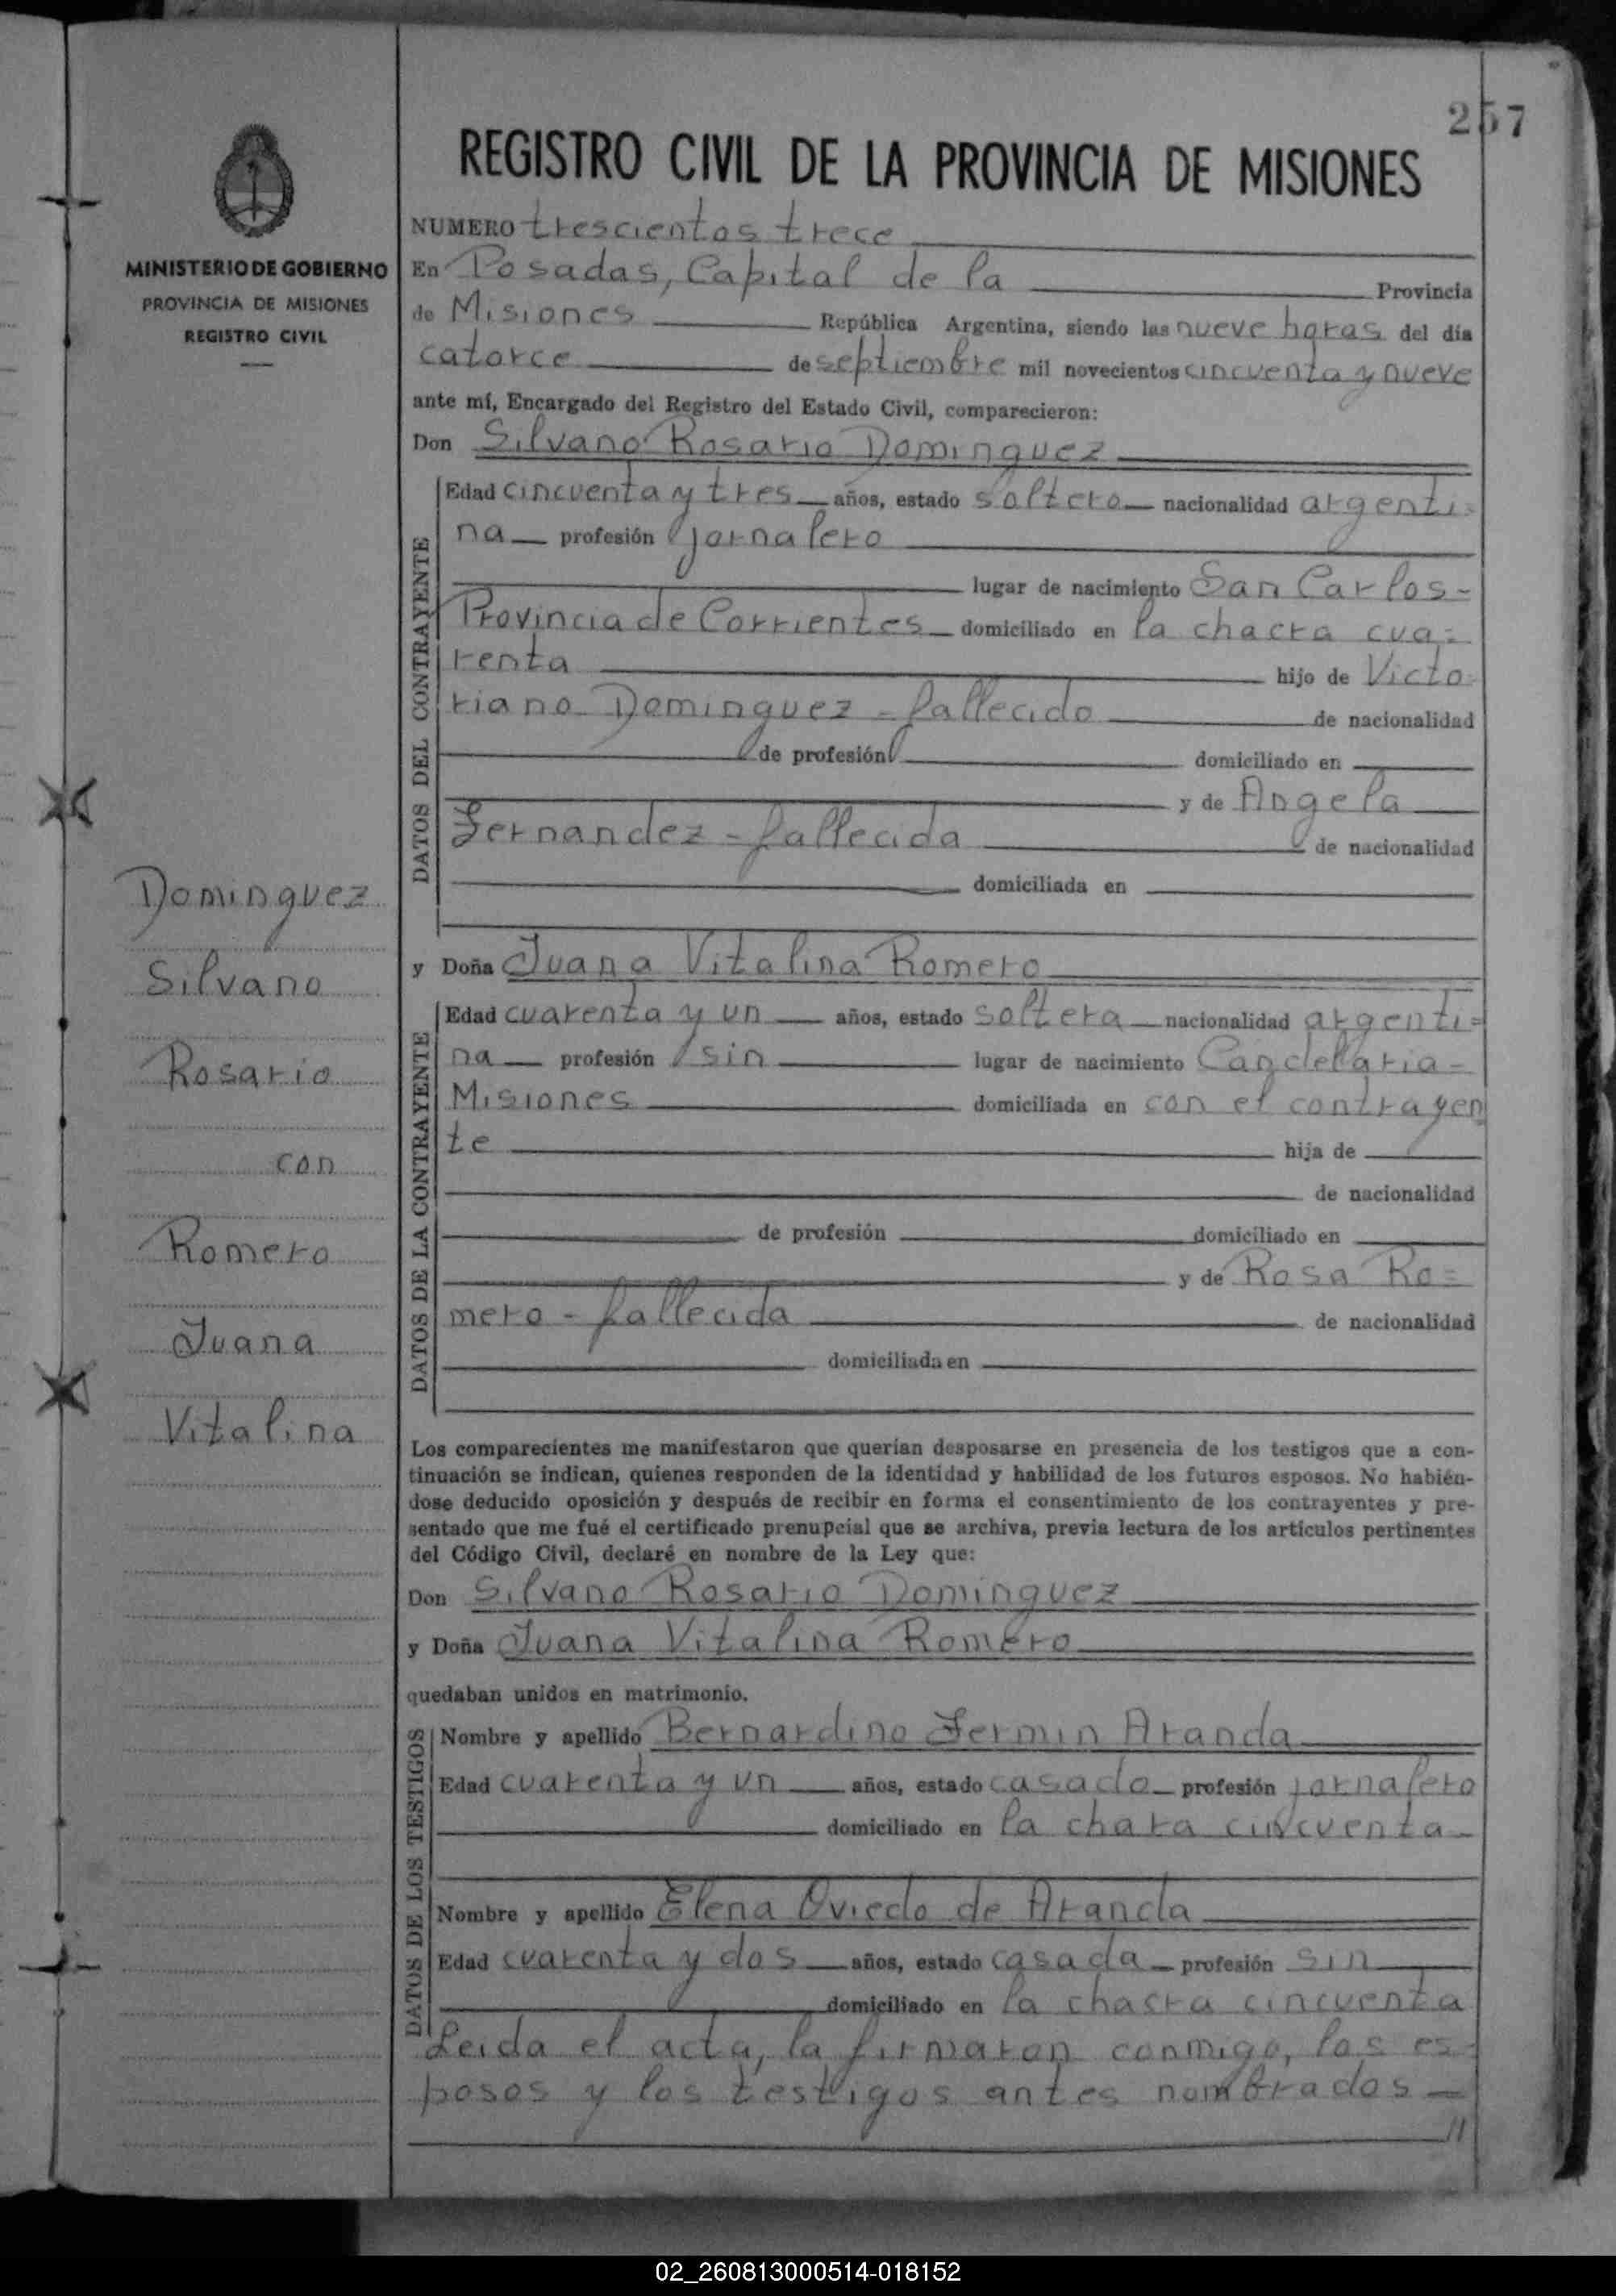 257
REGISTRO CIVIL DE LA PROVINCIA DE MISIONES
MINISTERIO DE GOBIERNO
PROVINCIA DE MISIONES
REGISTRO CIVIL
Dominguez
Silvano
Rosario
con
Romero
Juana
Vitalina
NUMERO trescientos trece
En Posadas, Capital de la Provincia
de Misiones República Argentina, siendo las nueve horas del día
catorce de septiembre mil novecientos cincuenta y nueve
ante mí, Encargado del Registro del Estado Civil, comparecieron:
Don Silvano Rosario Dominguez
DATOS DEL CONTRAYENTE
Edad cincuenta y tres años, estado soltero nacionalidad argenti=
na profesión jornalero
lugar de nacimiento San Carlos-
Provincia de Corrientes domiciliado en la chacra cua=
renta hijo de Victo=
riano Dominguez - fallecido de nacionalidad
de profesión domiciliado en
y de Angela
Fernandez - fallecida de nacionalidad
domiciliada en
y Doña Juana Vitalina Romero
DATOS DE LA CONTRAYENTE
Edad cuarenta y un años, estado soltera nacionalidad argenti=
na profesión sin lugar de nacimiento Candelaria-
Misiones domiciliada en con el contrayen
te hija de
de nacionalidad
de profesión domiciliado en
y de Rosa Ro=
mero - fallecida de nacionalidad
domiciliada en
Los comparecientes me manifestaron que querían desposarse en presencia de los testigos que a con-
tinuación se indican, quienes responden de la identidad y habilidad de los futuros esposos. No habién-
dose deducido oposición y después de recibir en forma el consentimiento de los contrayentes y pre-
sentado que me fué el certificado prenupcial que se archiva, previa lectura de los artículos pertinentes
del Código Civil, declaré en nombre de la Ley que:
Don Silvano Rosario Dominguez
y Doña Juana Vitalina Romero
quedaban unidos en matrimonio.
DATOS DE LOS TESTIGOS
Nombre y apellido Bernardino Fermin Aranda
Edad cuarenta y un años, estado casado profesión jornalero
domiciliado en la chara cincuenta
Nombre y apellido Elena Oviedo de Aranda
Edad cuarenta y dos años, estado casada profesión sin
domiciliado en la chacra cincuenta
Leida el acta, la firmaron conmigo, los es=
posos y los testigos antes nombrados
//
02_260813000514-018152